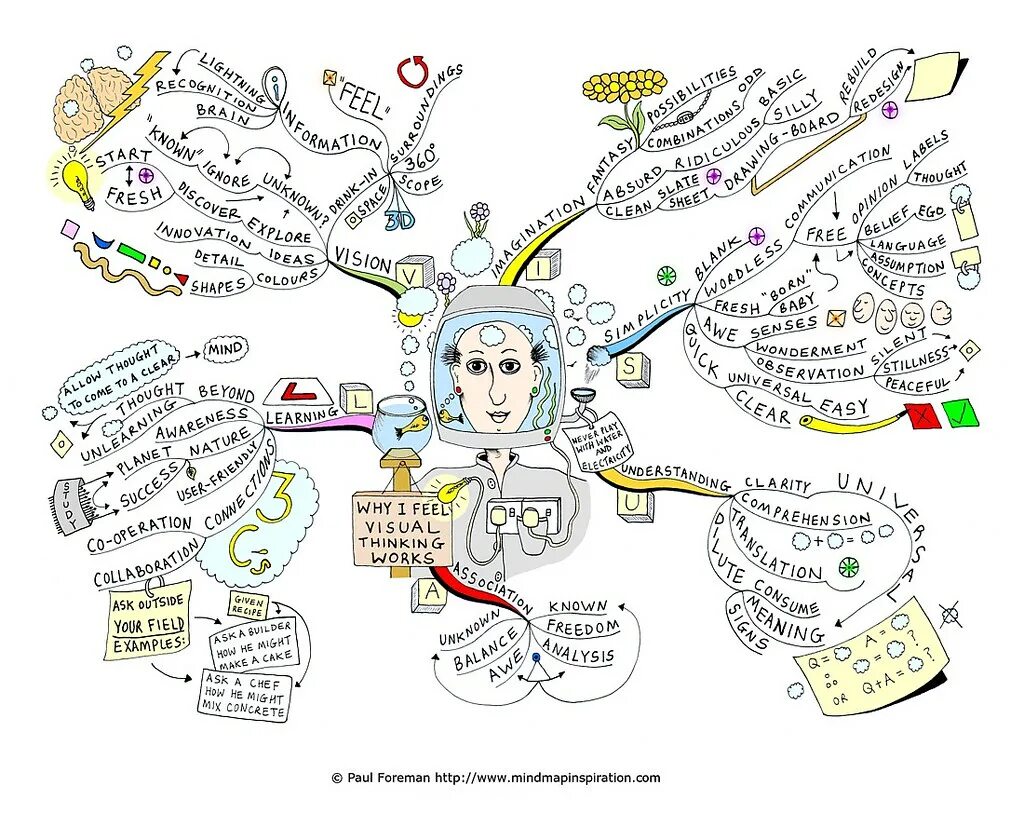 WHY I FEEL
VISUAL
THINKING
WORKS
V
VISION
DRINK-IN
INFORMATION
LIGHTNING
RECOGNITION
BRAIN
i
"FEEL"
SURROUNDINGS
360°
SCOPE
SPACE
3D
UNKNOWN?
IGNORE
"KNOWN"
EXPLORE
DISCOVER
START
FRESH
IDEAS
INNOVATION
COLOURS
DETAIL
SHAPES
I
IMAGINATION
FANTASY
POSSIBILITIES
COMBINATIONS
ODD
ABSURD
RIDICULOUS
BASIC
SILLY
CLEAN
SLATE
SHEET
DRAWING-BOARD
REBUILD
REDESIGN
S
SIMPLICITY
BLANK
WORDLESS
COMMUNICATION
FREE
OPINION
LABELS
THOUGHT
BELIEF
EGO
LANGUAGE
ASSUMPTION
CONCEPTS
FRESH
"BORN"
BABY
AWE
SENSES
WONDERMENT
OBSERVATION
SILENT
STILLNESS
PEACEFUL
QUICK
UNIVERSAL
EASY
CLEAR
NEVER PLAY
WITH WATER
AND
ELECTRICITY
U
UNDERSTANDING
CLARITY
UNIVERSAL
COMPREHENSION
+ =
TRANSLATION
DILUTE
CONSUME
MEANING
SIGNS
Q = A = ?
= ?
OR Q+A = ?
A
ASSOCIATION
KNOWN
FREEDOM
ANALYSIS
UNKNOWN
BALANCE
AWE
L
L
LEARNING
BEYOND
THOUGHT
UNLEARNING
ALLOW THOUGHT
TO COME TO A CLEAR
MIND
AWARENESS
NATURE
PLANET
SUCCESS
STUDY
USER-FRIENDLY
CONNECTIONS
CO-OPERATION
COLLABORATION
3
C's
ASK OUTSIDE
YOUR FIELD
EXAMPLES:
GIVEN
RECIPE
ASK A BUILDER
HOW HE MIGHT
MAKE A CAKE
ASK A CHEF
HOW HE MIGHT
MIX CONCRETE
© Paul Foreman http://www.mindmapinspiration.com